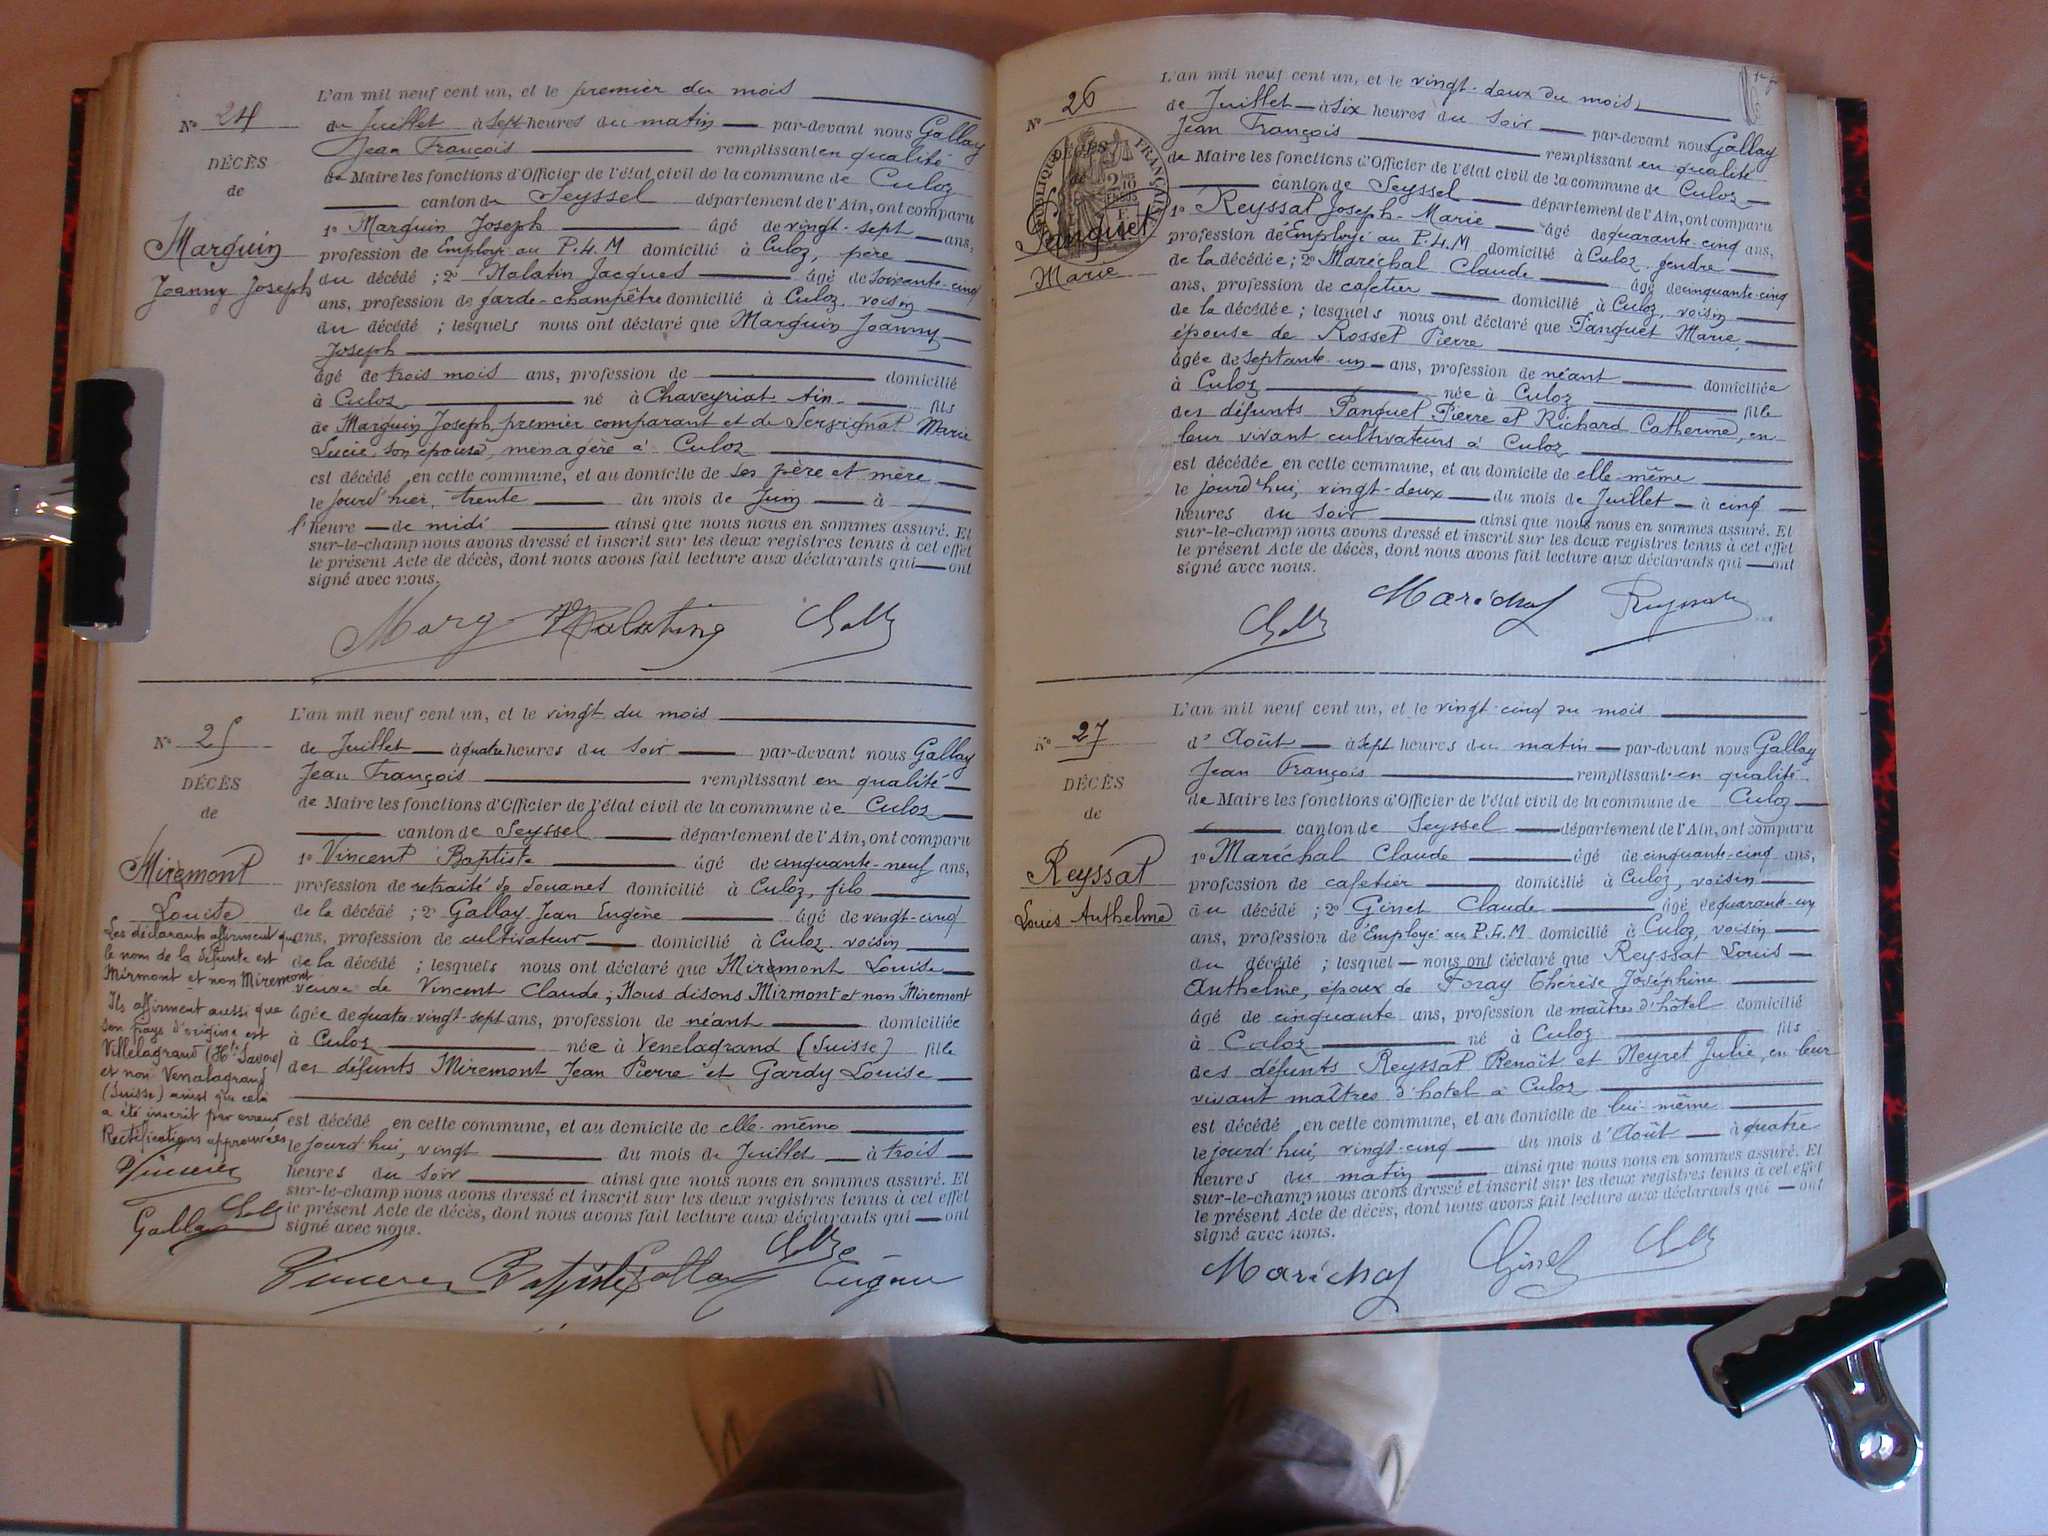 L'an mil neuf cent un, et le premier du mois
N° 24
de Juillet à sept heures du matin par-devant nous Gallay
Jean François remplissant en qualité
DÉCÈS
de Maire les fonctions d'Officier de l'état civil de la commune de Culoz
de
canton de Seyssel département de l'Ain, ont comparu
Marguin
1° Marguin Joseph âgé de vingt-sept ans,
profession de Employé au P.L.M domicilié à Culoz, père
Joanny Joseph
du décédé ; 2° Malatin Jacques âgé de soixante-cinq
ans, profession de garde-champêtre domicilié à Culoz, voisin
du décédé ; lesquels nous ont déclaré que Marguin Joanny
Joseph
âgé de trois mois ans, profession de domicilié
à Culoz né à Chaveyriat Ain fils
de Marguin Joseph, premier comparant et de Marie
Lucie, son épouse, menagère à Culoz
est décédé en cette commune, et au domicile de ses père et mère
le jourd'hier, trente du mois de Juin à
l'heure de midi ainsi que nous nous en sommes assuré. Et
sur-le-champ nous avons dressé et inscrit sur les deux registres tenus à cet effet
le présent Acte de décès, dont nous avons fait lecture aux déclarants qui ont
signé avec nous.
L'an mil neuf cent un, et le vingt du mois
N° 25
de Juillet à quatre heures du soir par-devant nous Gallay
Jean François remplissant en qualité
DÉCÈS
de Maire les fonctions d'Officier de l'état civil de la commune de Culoz
de
canton de Seyssel département de l'Ain, ont comparu
Miremont
1° Vincent Baptiste âgé de cinquante-neuf ans,
profession de retraité de douanes domicilié à Culoz, fils
Louise
de la décédé ; 2° Gallay Jean Eugène âgé de vingt-cinq
ans, profession de cultivateur domicilié à Culoz voisin
de la décédé ; lesquels nous ont déclaré que Miremont Louise
veuve de Vincent Claude ; Nous disons Mirmont et non Miremont
âgée de quatre-vingt-sept ans, profession de néant domiciliée
à Culoz née à Venelagrand (Suisse) fille
des défunts Miremont Jean Pierre et Gardy Louise
est décédé en cette commune, et au domicile de elle-même
le jourd'hui, vingt du mois de Juillet à trois
heures du soir ainsi que nous nous en sommes assuré. Et
sur-le-champ nous avons dressé et inscrit sur les deux registres tenus à cet effet
le présent Acte de décès, dont nous avons fait lecture aux déclarants qui ont
signé avec nous.
Les déclarants affirment que
le nom de la défunte est
Mirmont et non Miremont
Ils affirment aussi que
son pays d'origine est
Villelagrand (Hte Savoie)
et non Venalagrand
(Suisse) ainsi que cela
a été inscrit par erreur
Rectifications approuvées
Vincent
Gallay
Vincent Baptiste Gallay Eugène
L'an mil neuf cent un, et le vingt-deux du mois
N° 26
de Juillet à six heures du soir par-devant nous Gallay
Jean François remplissant en qualité
DÉCÈS
de Maire les fonctions d'Officier de l'état civil de la commune de Culoz
canton de Seyssel département de l'Ain, ont comparu
Panguet
1° Reyssat Joseph-Marie âgé de quarante-cinq ans,
profession d'Employé au P.L.M domicilié à Culoz, gendre
Marie
de la décédée ; 2° Maréchal Claude âgé de cinquante-cinq
ans, profession de cafetier domicilié à Culoz, voisin
de la décédée ; lesquels nous ont déclaré que Panguet Marie
épouse de Rosset Pierre
âgée de septante-un ans, profession de néant domiciliée
à Culoz née à Culoz fille
des défunts Panguet Pierre et Richard Catherine, en
leur vivant cultivateurs à Culoz
est décédée en cette commune, et au domicile de elle-même
le jourd'hui, vingt-deux du mois de Juillet à cinq
heures du soir ainsi que nous nous en sommes assuré. Et
sur-le-champ nous avons dressé et inscrit sur les deux registres tenus à cet effet
le présent Acte de décès, dont nous avons fait lecture aux déclarants qui ont
signé avec nous.
Maréchal Reyssat
L'an mil neuf cent un, et le vingt-cinq du mois
N° 27
d'Août à sept heures du matin par-devant nous Gallay
Jean François remplissant en qualité
DÉCÈS
de Maire les fonctions d'Officier de l'état civil de la commune de Culoz
de
canton de Seyssel département de l'Ain, ont comparu
Reyssat
1° Maréchal Claude âgé de cinquante-cinq ans,
profession de cafetier domicilié à Culoz, voisin
Louis Anthelme
du décédé ; 2° Ginet Claude âgé de quarante-un
ans, profession d'Employé au P.L.M domicilié à Culoz, voisin
du décédé ; lesquel nous ont déclaré que Reyssat Louis
Anthelme, époux de Foray Thérèse Joséphine
âgé de cinquante ans, profession de maître d'hôtel domicilié
à Culoz né à Culoz fils
des défunts Reyssat Benoît et Neyret Julie, en leur
vivant maîtres d'hôtel à Culoz
est décédé en cette commune, et au domicile de lui-même
le jourd'hui, vingt-cinq du mois d'Août à quatre
heures du matin ainsi que nous nous en sommes assuré. Et
sur-le-champ nous avons dressé et inscrit sur les deux registres tenus à cet effet
le présent Acte de décès, dont nous avons fait lecture aux déclarants qui ont
signé avec nous.
Maréchal Ginet